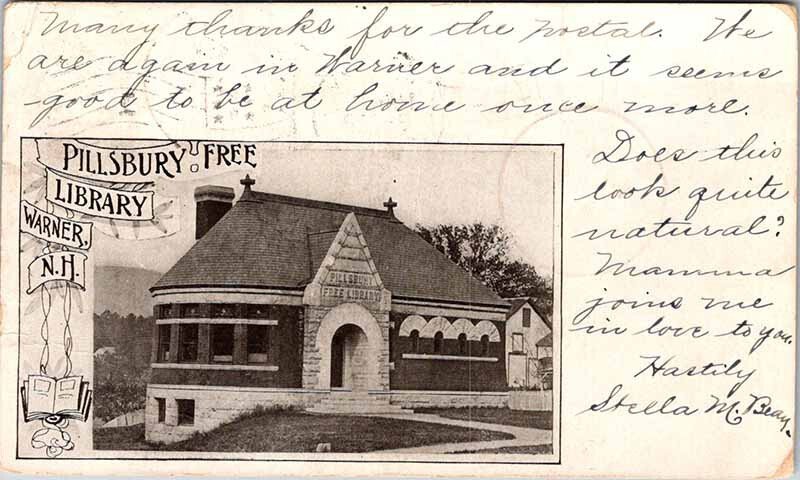 Many thanks for the postal. We
are again in Warner and it seems
good to be at home once more.
Does this
look quite
natural?
Mamma
joins me
in love to you.
Hastily
Stella M. Bean.
PILLSBURY FREE
LIBRARY
WARNER,
N.H.
PILLSBURY
FREE LIBRARY